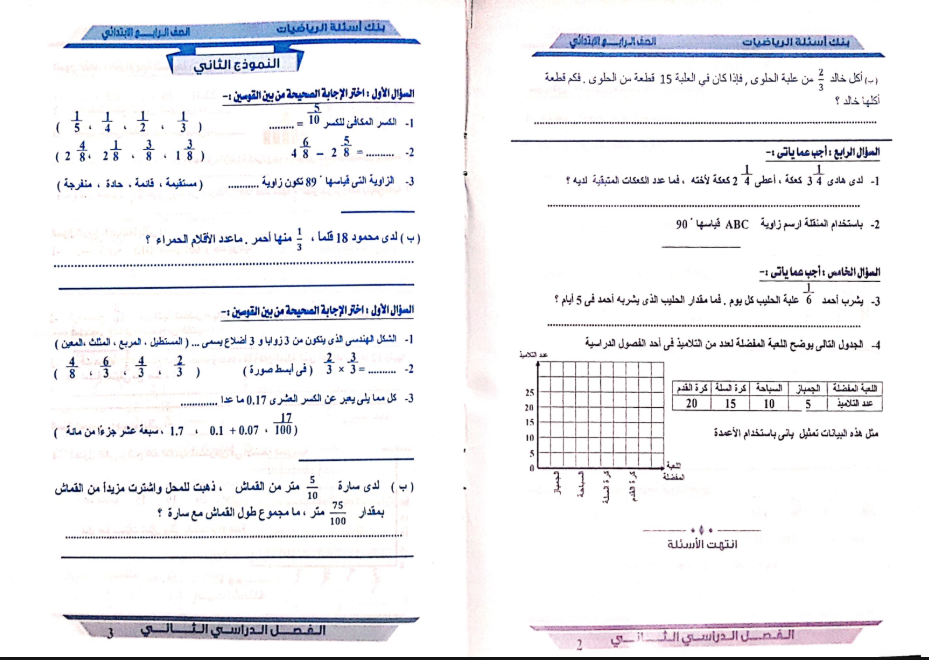 بنك أسئلة الرياضيات
الصف الرابع الابتدائي
(ب) أكل خالد 2/3 من علبة الحلوى , فإذا كان في العلبة 15 قطعة من الحلوى . فكم قطعة
أكلها خالد ؟
السؤال الرابع : أجب عما يأتى :-
1- لدى هادى 3 1/4 كعكة ، أعطى 2 1/4 كعكة لأخته ، فما عدد الكعكات المتبقية لديه ؟
2- باستخدام المنقلة ارسم زاوية ABC قياسها 90°
السؤال الخامس : أجب عما يأتى :-
3- يشرب أحمد 1/6 علبة الحليب كل يوم . فما مقدار الحليب الذى يشربه أحمد فى 5 أيام ؟
4- الجدول التالى يوضح اللعبة المفضلة لعدد من التلاميذ فى أحد الفصول الدراسية
اللعبة المفضلة | الجمباز | السباحة | كرة السلة | كرة القدم
عدد التلاميذ | 5 | 10 | 15 | 20
مثل هذه البيانات تمثيل بيانى باستخدام الأعمدة
عدد التلاميذ
25
20
15
10
5
0
الجمباز
السباحة
كرة السلة
كرة القدم
اللعبة
المفضلة
انتهت الأسئلة
الفصل الدراسي الثاني
2
بنك أسئلة الرياضيات
الصف الرابع الابتدائي
النموذج الثاني
السؤال الأول : اختر الإجابة الصحيحة من بين القوسين :-
1- الكسر المكافئ للكسر 5/10 = ......... ( 1/3 ، 1/2 ، 1/4 ، 1/5 )
2- 4 6/8 – 2 5/8 = .......... ( 1 3/8 ، 3/8 ، 2 1/8 ، 2 4/8 )
3- الزاوية التى قياسها 89° تكون زاوية ........... ( مستقيمة ، قائمة ، حادة ، منفرجة )
( ب ) لدى محمود 18 قلماً ، 1/3 منها أحمر . ماعدد الأقلام الحمراء ؟
السؤال الأول : اختر الإجابة الصحيحة من بين القوسين :-
1- الشكل الهندسى الذى يتكون من 3 زوايا و 3 أضلاع يسمى ... ( المستطيل ، المربع ، المثلث ،المعين )
2- .......... = 2/3 × 3/3 ( فى أبسط صورة ) ( 2/3 ، 4/3 ، 6/3 ، 4/8 )
3- كل مما يلى يعبر عن الكسر العشرى 0.17 ما عدا ............
( 17/100 ، 0.1 + 0.07 ، 1.7 ، سبعة عشر جزءًا من مائة )
( ب ) لدى سارة 5/10 متر من القماش ، ذهبت للمحل واشترت مزيداً من القماش
بمقدار 75/100 متر ، ما مجموع طول القماش مع سارة ؟
الفصل الدراسي الثاني
3